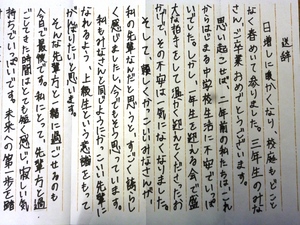 送辞
日増しに暖かくなり、校庭もどことなく春めいて参りました。三年生のみなさん、ご卒業おめでとうございます。
思い起こせば、二年前の私たちは、これからはじまる中学校生活に不安でいっぱいでした。しかし、一年生を迎える会で盛大な拍手をして温かく迎えてくださったおかげで、その不安は一気になくなりました。
そして、優しくかっこいいみなさんが、私の先輩なんだと思うと、すごく誇らしく感じましたし、今でもそう思っています。
私もみなさんと同じようにかっこいい先輩になれるよう、上級生という意識をもって
がんばりたいと思います。
そんな先輩方と一緒に過ごせるのも今日で最後です。私にとって、先輩方と過ごしてきた時間はとても短く感じ、寂しい気持ちでいっぱいです。未来への第一歩を踏